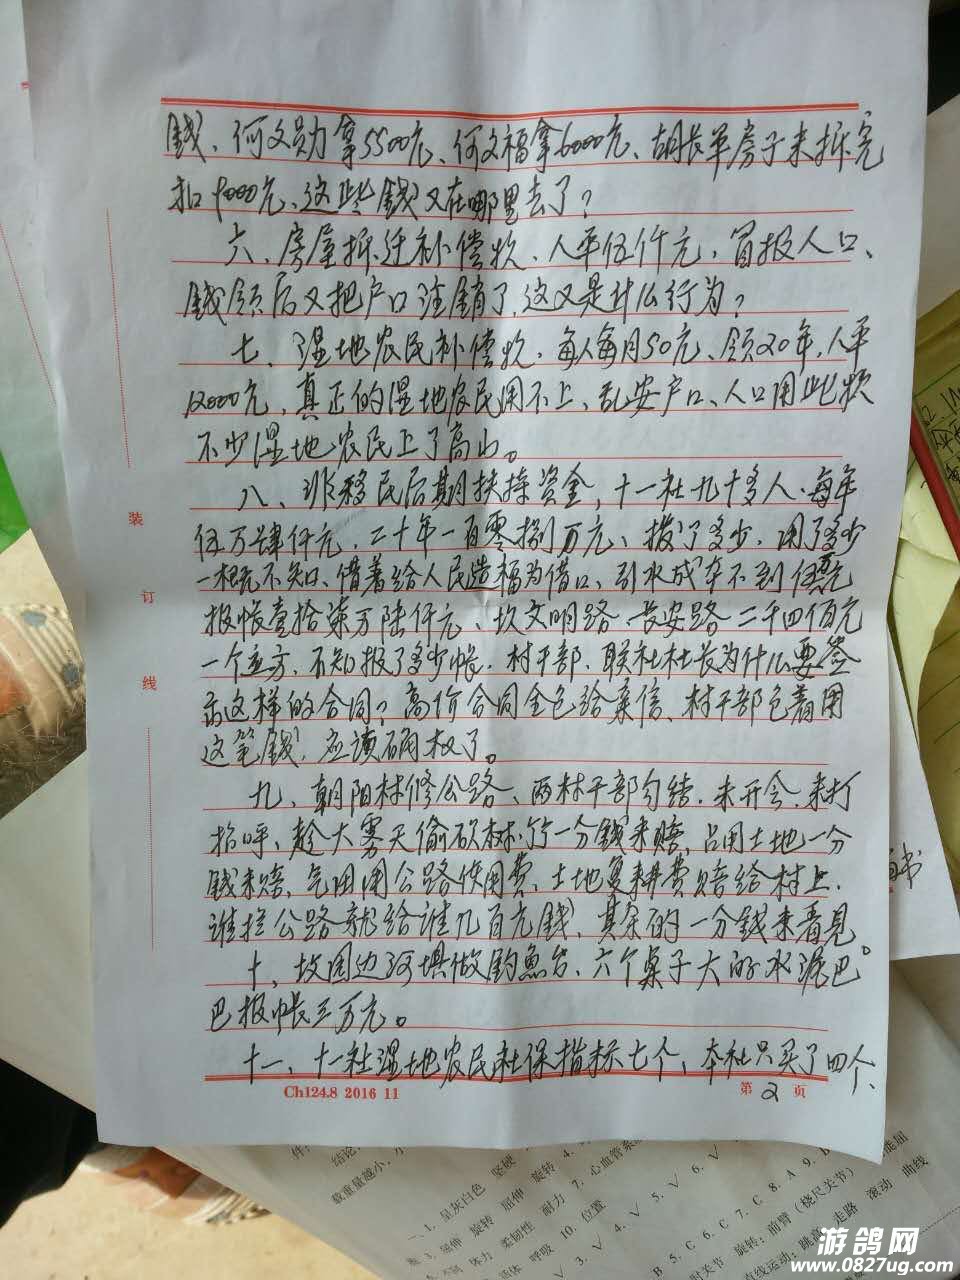 钱、何文勋拿5500元、何文福拿6000元、胡长军房子未拆完
扣9000元、这些钱又在哪里去了？
六、房屋拆迁补偿款、人平伍仟元，冒报人口、
钱领后又把户口注销了，这又是什么行为？
七、湿地农民补偿款，每人每月50元、领20年，人平
12000元，真正的湿地农民用不上、乱安户口、人口用此款
不少湿地农民上了高山。
八、非移民后期扶持资金，十一社九十多人、每年
伍万肆仟元，二十年一百零捌万元、拨了多少，用了多少
一概不知、借着给人民造福为借口、引水成本不到伍万元
报帐壹拾柒万陆仟元、坎文明路、长安路二千四佰元
一个立方、不知报了多少帐，村干部、联社社长为什么要签
这样的合同？高价合同全包给亲信、村干部包着用
这笔钱，应该确权了。
九、朝阳村修公路、两村干部勾结，未开会，未打
招呼、趁大雾天偷砍树、竹一分钱未赔，占用土地一分
钱未赔，气田用公路使用费、土地复耕费赔给村上，
谁拦公路就给谁几百元钱、其余的一分钱未看见
十、故周边河堤做钓鱼台、六个桌子大的水泥巴
巴报帐三万元。
十一、十一社湿地农民社保指标七个，本社只买了四个、
装
订
线
Ch124.8 2016 11
第 2 页
游鸽网
www.0827ug.com